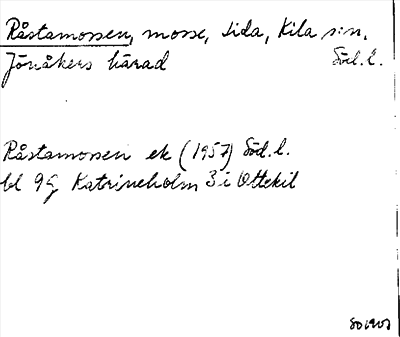 Råstamossen, mosse, Lida, Kila sn.
Jönåkers härad Söd. l.
Råstamossen ek (1957) Söd. l.
bl 9G Katrineholm 3 i Ottekil